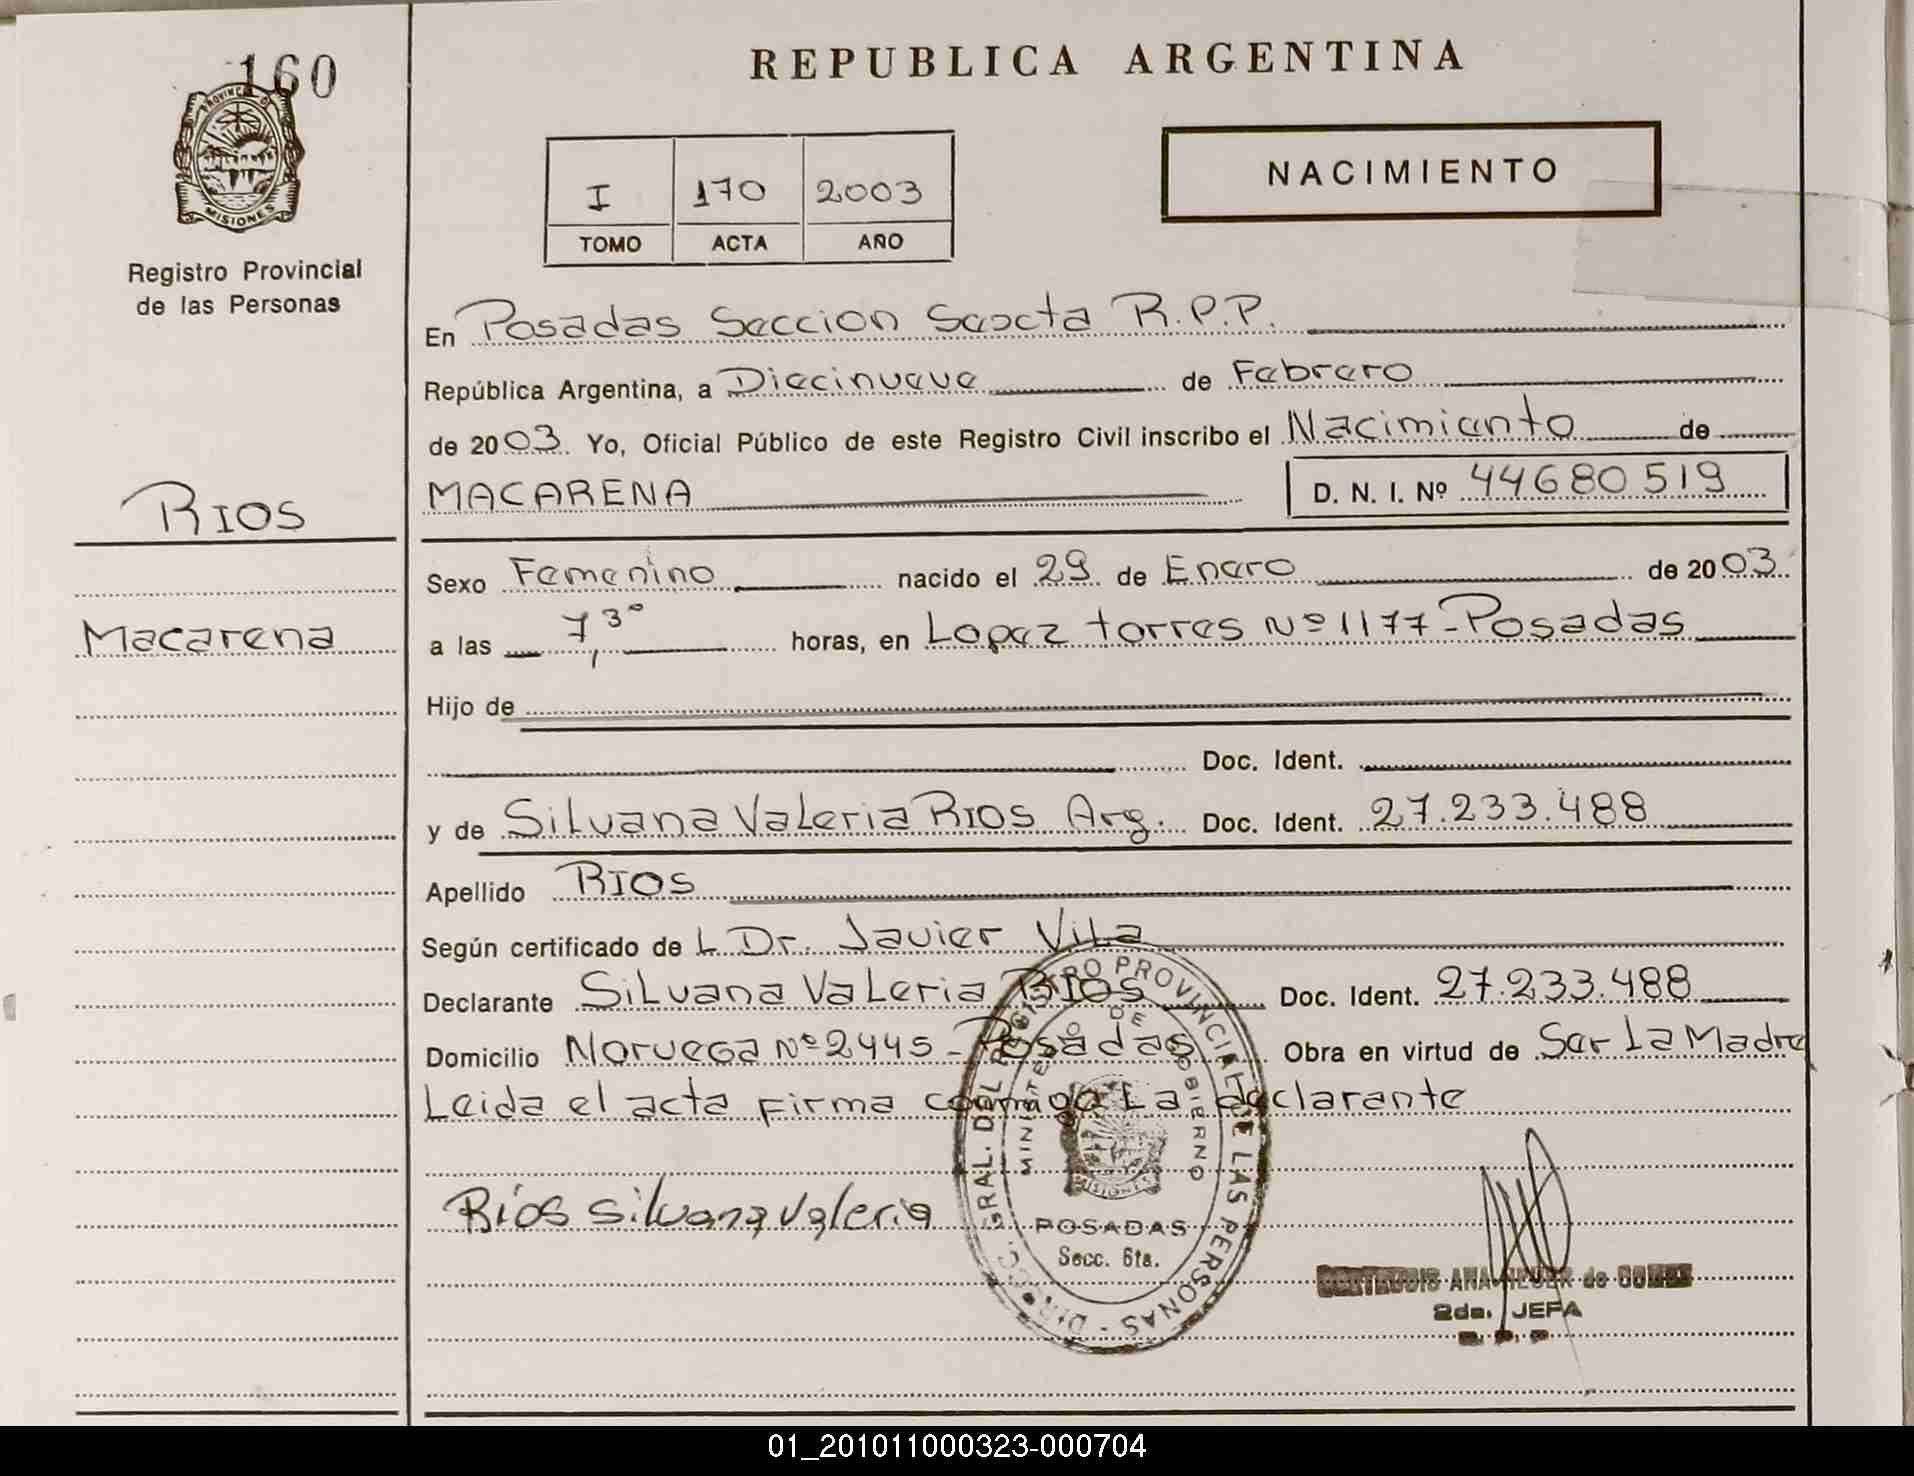 160
PROVINCIA DE
MISIONES
Registro Provincial
de las Personas
RIOS
Macarena
REPUBLICA ARGENTINA
I 170 2003
TOMO ACTA AÑO
NACIMIENTO
En Posadas Seccion Sexcta R.P.P.
República Argentina, a Diecinueve de Febrero
de 2003. Yo, Oficial Público de este Registro Civil inscribo el Nacimiento de
MACARENA D. N. I. Nº 44680519
Sexo Femenino nacido el 29 de Enero de 2003
a las 7,30 horas, en Lopez torres Nº 1177-Posadas
Hijo de
Doc. Ident.
y de Silvana Valeria RIOS Arg. Doc. Ident. 27.233.488
Apellido RIOS
Según certificado de L Dr. Javier Vila
Declarante Silvana Valeria RIOS Doc. Ident. 27.233.488
Domicilio Noruega Nº 2445-Posadas Obra en virtud de Ser La Madre
Leida el acta firma conmigo La declarante
Rios Silvana Valeria
DIRECC. GRAL. DEL REGISTRO PROVINCIAL DE LAS PERSONAS
MINISTERIO DE GOBIERNO
MISIONES
POSADAS
Secc. 6ta.
ANA de
2da. JEFA
01_201011000323-000704